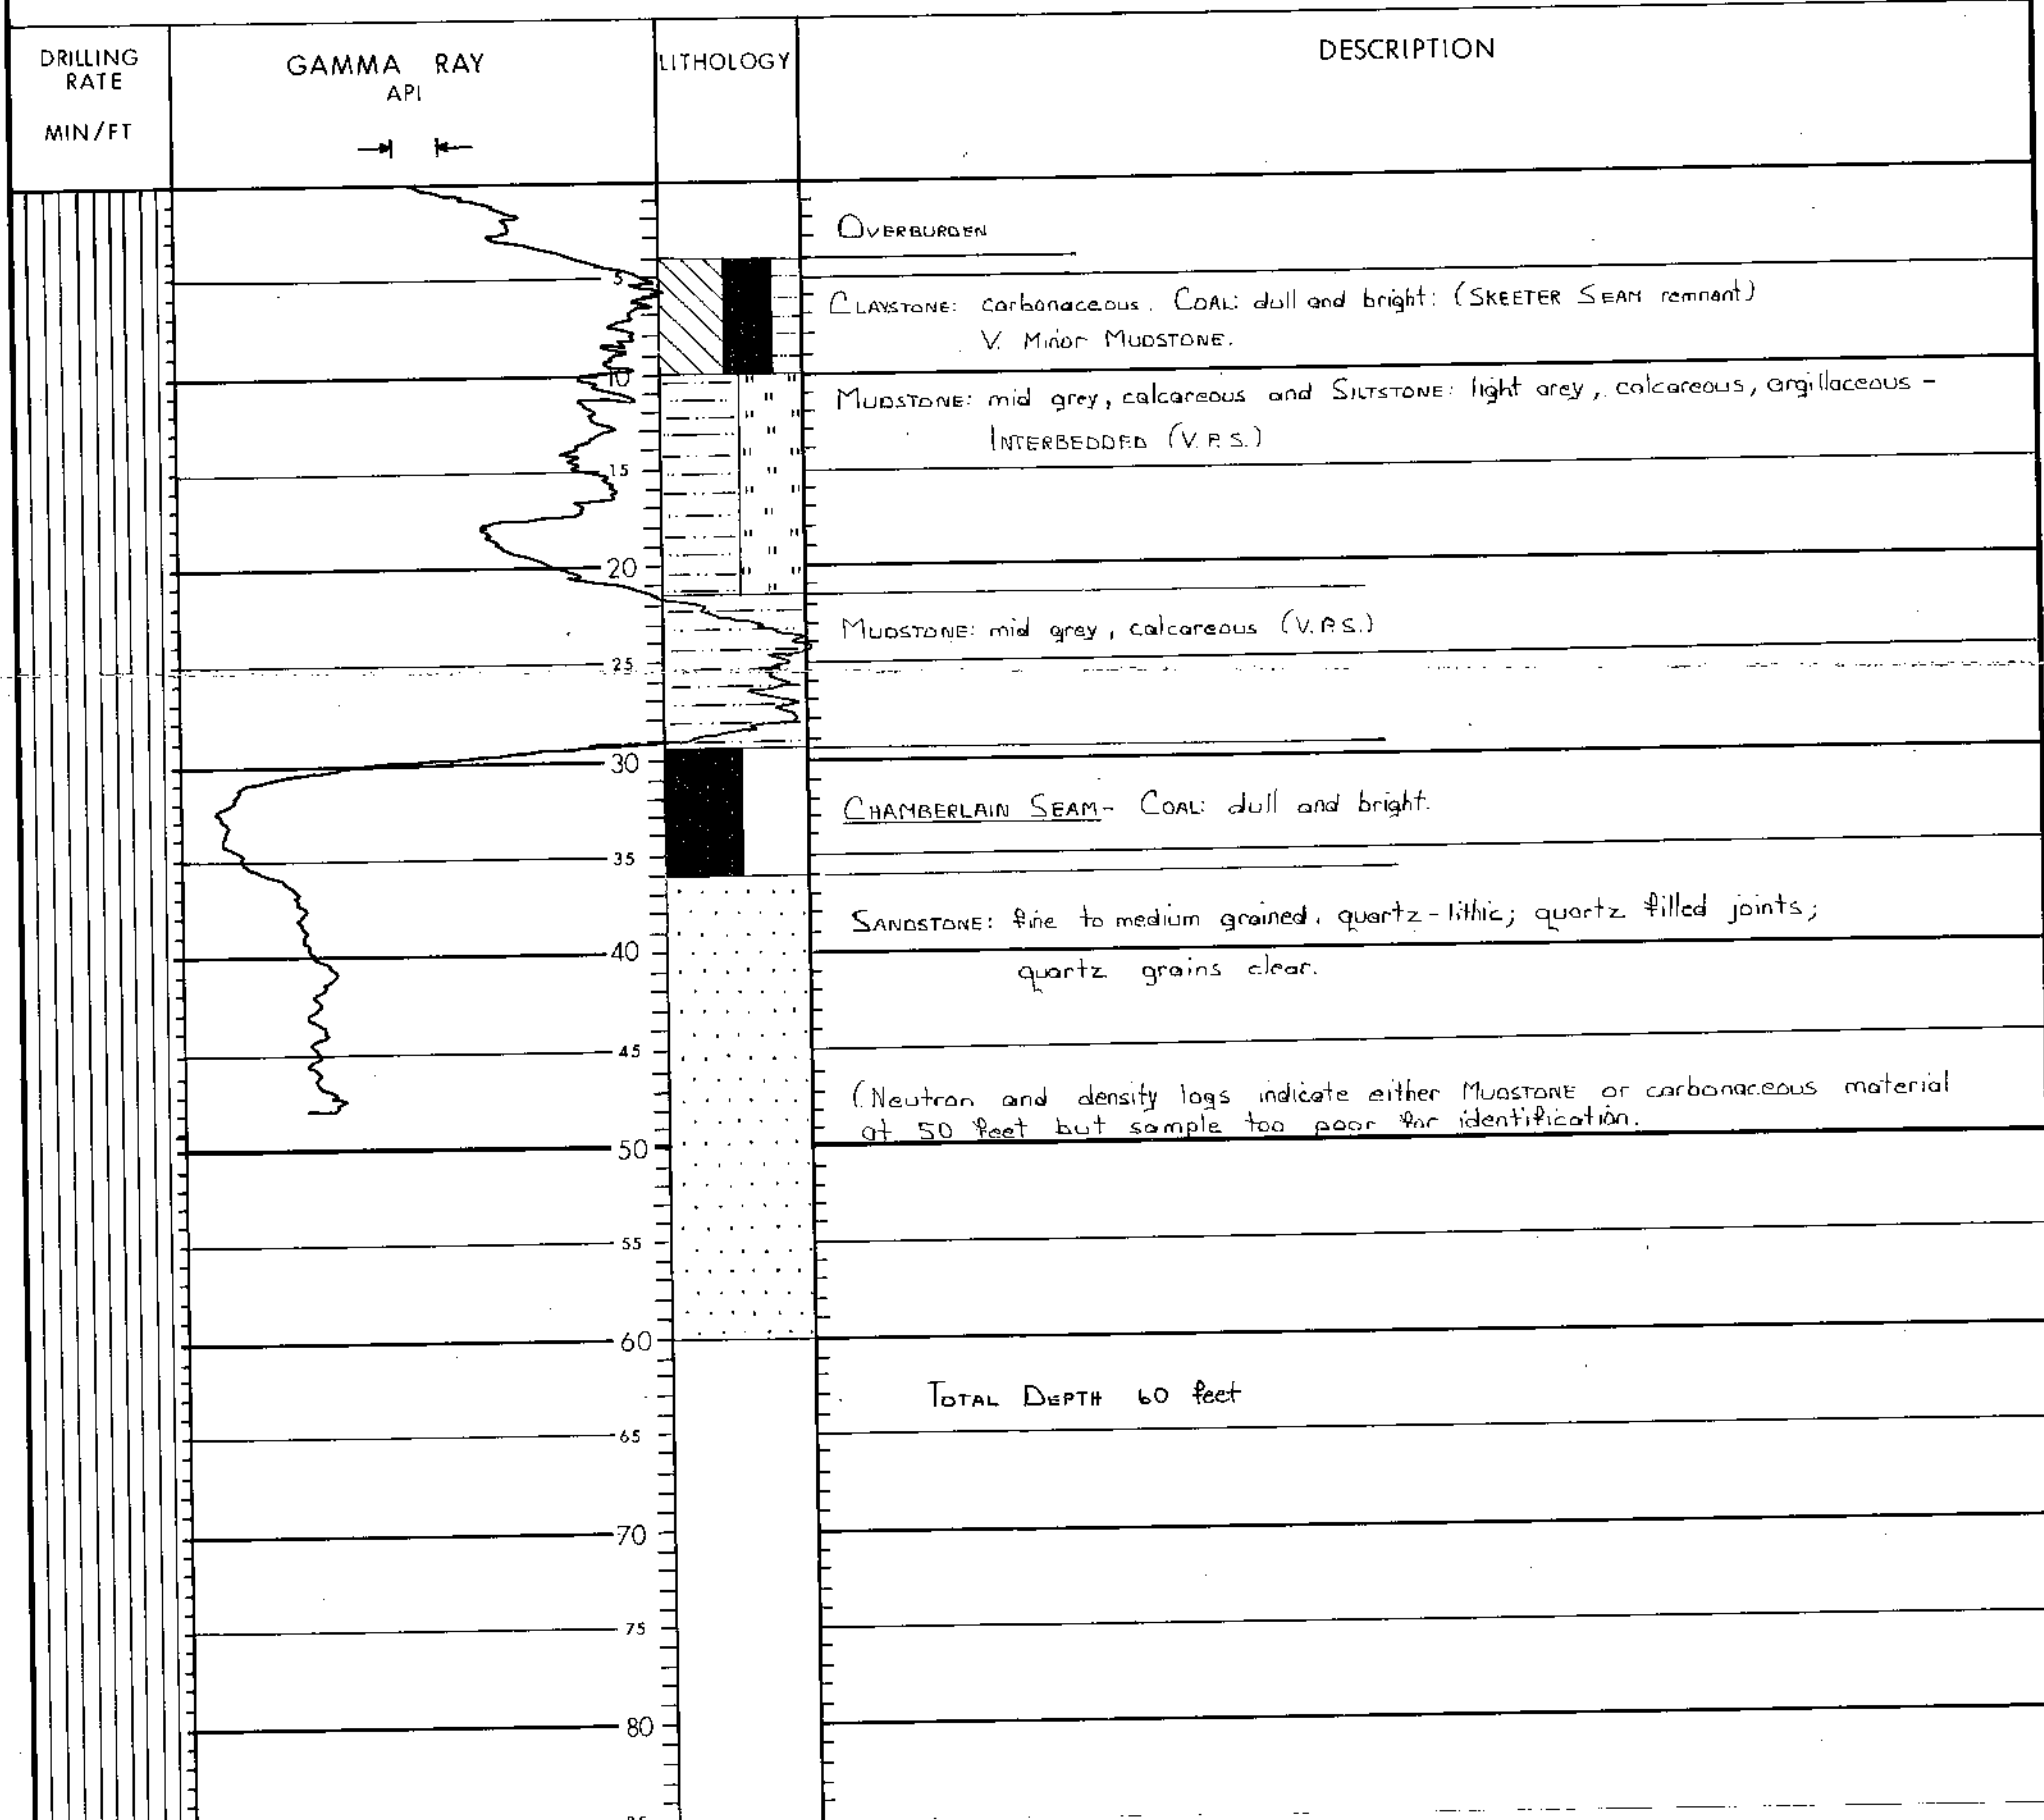 DRILLING
RATE
MIN/FT
GAMMA RAY
API
LITHOLOGY
DESCRIPTION
OVERBURDEN
5
CLAYSTONE: carbonaceous. COAL: dull and bright: (SKEETER SEAM remnant)
V. Minor MUDSTONE.
10
MUDSTONE: mid grey, calcareous and SILTSTONE: light grey, calcareous, argillaceous -
INTERBEDDED (V.P.S.)
15
20
MUDSTONE: mid grey, calcareous (V.P.S.)
25
30
CHAMBERLAIN SEAM - COAL: dull and bright.
35
SANDSTONE: fine to medium grained, quartz-lithic; quartz filled joints;
40
quartz grains clear.
45
(Neutron and density logs indicate either MUDSTONE or carbonaceous material
at 50 feet but sample too poor for identification.
50
55
60
TOTAL DEPTH 60 feet
65
70
75
80